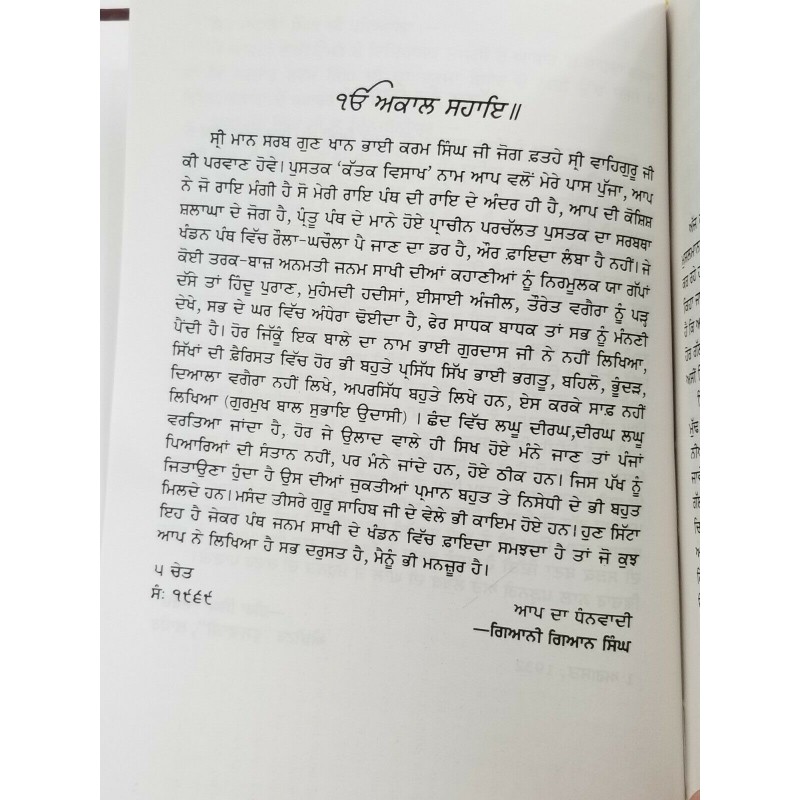 ੴ ਅਕਾਲ ਸਹਾਇ॥
ਸ੍ਰੀ ਮਾਨ ਸਰਬ ਗੁਣ ਖਾਨ ਭਾਈ ਕਰਮ ਸਿੰਘ ਜੀ ਜੋਗ ਫ਼ਤਹੇ ਸ੍ਰੀ ਵਾਹਿਗੁਰੂ ਜੀ
ਕੀ ਪਰਵਾਣ ਹੋਵੇ। ਪੁਸਤਕ ‘ਕੱਤਕ ਵਿਸਾਖ’ ਨਾਮ ਆਪ ਵਲੋਂ ਮੇਰੇ ਪਾਸ ਪੁੱਜਾ, ਆਪ
ਨੇ ਜੋ ਰਾਇ ਮੰਗੀ ਹੈ ਸੋ ਮੇਰੀ ਰਾਇ ਪੰਥ ਦੀ ਰਾਇ ਦੇ ਅੰਦਰ ਹੀ ਹੈ, ਆਪ ਦੀ ਕੋਸ਼ਿਸ਼
ਸ਼ਲਾਘਾ ਦੇ ਜੋਗ ਹੈ, ਪ੍ਰੰਤੂ ਪੰਥ ਦੇ ਮਾਨੇ ਹੋਏ ਪ੍ਰਾਚੀਨ ਪਰਚੱਲਤ ਪੁਸਤਕ ਦਾ ਸਰਬਥਾ
ਖੰਡਨ ਪੰਥ ਵਿੱਚ ਰੌਲਾ-ਘਚੌਲਾ ਪੈ ਜਾਣ ਦਾ ਡਰ ਹੈ, ਔਰ ਫ਼ਾਇਦਾ ਲੰਬਾ ਹੈ ਨਹੀਂ। ਜੇ
ਕੋਈ ਤਰਕ-ਬਾਜ਼ ਅਨਮਤੀ ਜਨਮ ਸਾਖੀ ਦੀਆਂ ਕਹਾਣੀਆਂ ਨੂੰ ਨਿਰਮੂਲਕ ਯਾ ਗੱਪਾਂ
ਦੱਸੇ ਤਾਂ ਹਿੰਦੂ ਪੁਰਾਣ, ਮੁਹੰਮਦੀ ਹਦੀਸਾਂ, ਈਸਾਈ ਅੰਜੀਲ, ਤੌਰੇਤ ਵਗੈਰਾ ਨੂੰ ਪੜ੍ਹ
ਦੇਖੇ, ਸਭ ਦੇ ਘਰ ਵਿੱਚ ਅੰਧੇਰਾ ਢੋਈਦਾ ਹੈ, ਫੇਰ ਸਾਧਕ ਬਾਧਕ ਤਾਂ ਸਭ ਨੂੰ ਮੰਨਣੀ
ਪੈਂਦੀ ਹੈ। ਹੋਰ ਜਿੱਕੂੰ ਇਕ ਬਾਲੇ ਦਾ ਨਾਮ ਭਾਈ ਗੁਰਦਾਸ ਜੀ ਨੇ ਨਹੀਂ ਲਿਖਿਆ,
ਸਿੱਖਾਂ ਦੀ ਫ਼ੈਰਿਸਤ ਵਿੱਚ ਹੋਰ ਭੀ ਬਹੁਤੇ ਪ੍ਰਸਿੱਧ ਸਿੱਖ ਭਾਈ ਭਗਤੂ, ਬਹਿਲੋ, ਭੂੰਦੜ,
ਦਿਆਲਾ ਵਗੈਰਾ ਨਹੀਂ ਲਿਖੇ, ਅਪਰਸਿੱਧ ਬਹੁਤੇ ਲਿਖੇ ਹਨ, ਏਸ ਕਰਕੇ ਸਾਫ਼ ਨਹੀਂ
ਲਿਖਿਆ (ਗੁਰਮੁਖ ਬਾਲ ਸੁਭਾਇ ਉਦਾਸੀ) । ਛੰਦ ਵਿੱਚ ਲਘੂ ਦੀਰਘ,ਦੀਰਘ ਲਘੂ
ਵਰਤਿਆ ਜਾਂਦਾ ਹੈ, ਹੋਰ ਜੇ ਉਲਾਦ ਵਾਲੇ ਹੀ ਸਿਖ ਹੋਏ ਮੰਨੇ ਜਾਣ ਤਾਂ ਪੰਜਾਂ
ਪਿਆਰਿਆਂ ਦੀ ਸੰਤਾਨ ਨਹੀਂ, ਪਰ ਮੰਨੇ ਜਾਂਦੇ ਹਨ, ਹੋਏ ਠੀਕ ਹਨ। ਜਿਸ ਪੱਖ ਨੂੰ
ਜਿਤਾਉਣਾ ਹੁੰਦਾ ਹੈ ਉਸ ਦੀਆਂ ਜੁਕਤੀਆਂ ਪ੍ਰਮਾਨ ਬਹੁਤ ਤੇ ਨਿਸੇਧੀ ਦੇ ਭੀ ਬਹੁਤ
ਮਿਲਦੇ ਹਨ। ਮਸੰਦ ਤੀਸਰੇ ਗੁਰੂ ਸਾਹਿਬ ਜੀ ਦੇ ਵੇਲੇ ਭੀ ਕਾਇਮ ਹੋਏ ਹਨ। ਹੁਣ ਸਿੱਟਾ
ਇਹ ਹੈ ਜੇਕਰ ਪੰਥ ਜਨਮ ਸਾਖੀ ਦੇ ਖੰਡਨ ਵਿੱਚ ਫ਼ਾਇਦਾ ਸਮਝਦਾ ਹੈ ਤਾਂ ਜੋ ਕੁਝ
ਆਪ ਨੇ ਲਿਖਿਆ ਹੈ ਸਭ ਦਰੁਸਤ ਹੈ, ਮੈਨੂੰ ਭੀ ਮਨਜ਼ੂਰ ਹੈ।
੫ ਚੇਤ
ਸੰ: ੧੯੬੯
ਆਪ ਦਾ ਧੰਨਵਾਦੀ
—ਗਿਆਨੀ ਗਿਆਨ ਸਿੰਘ